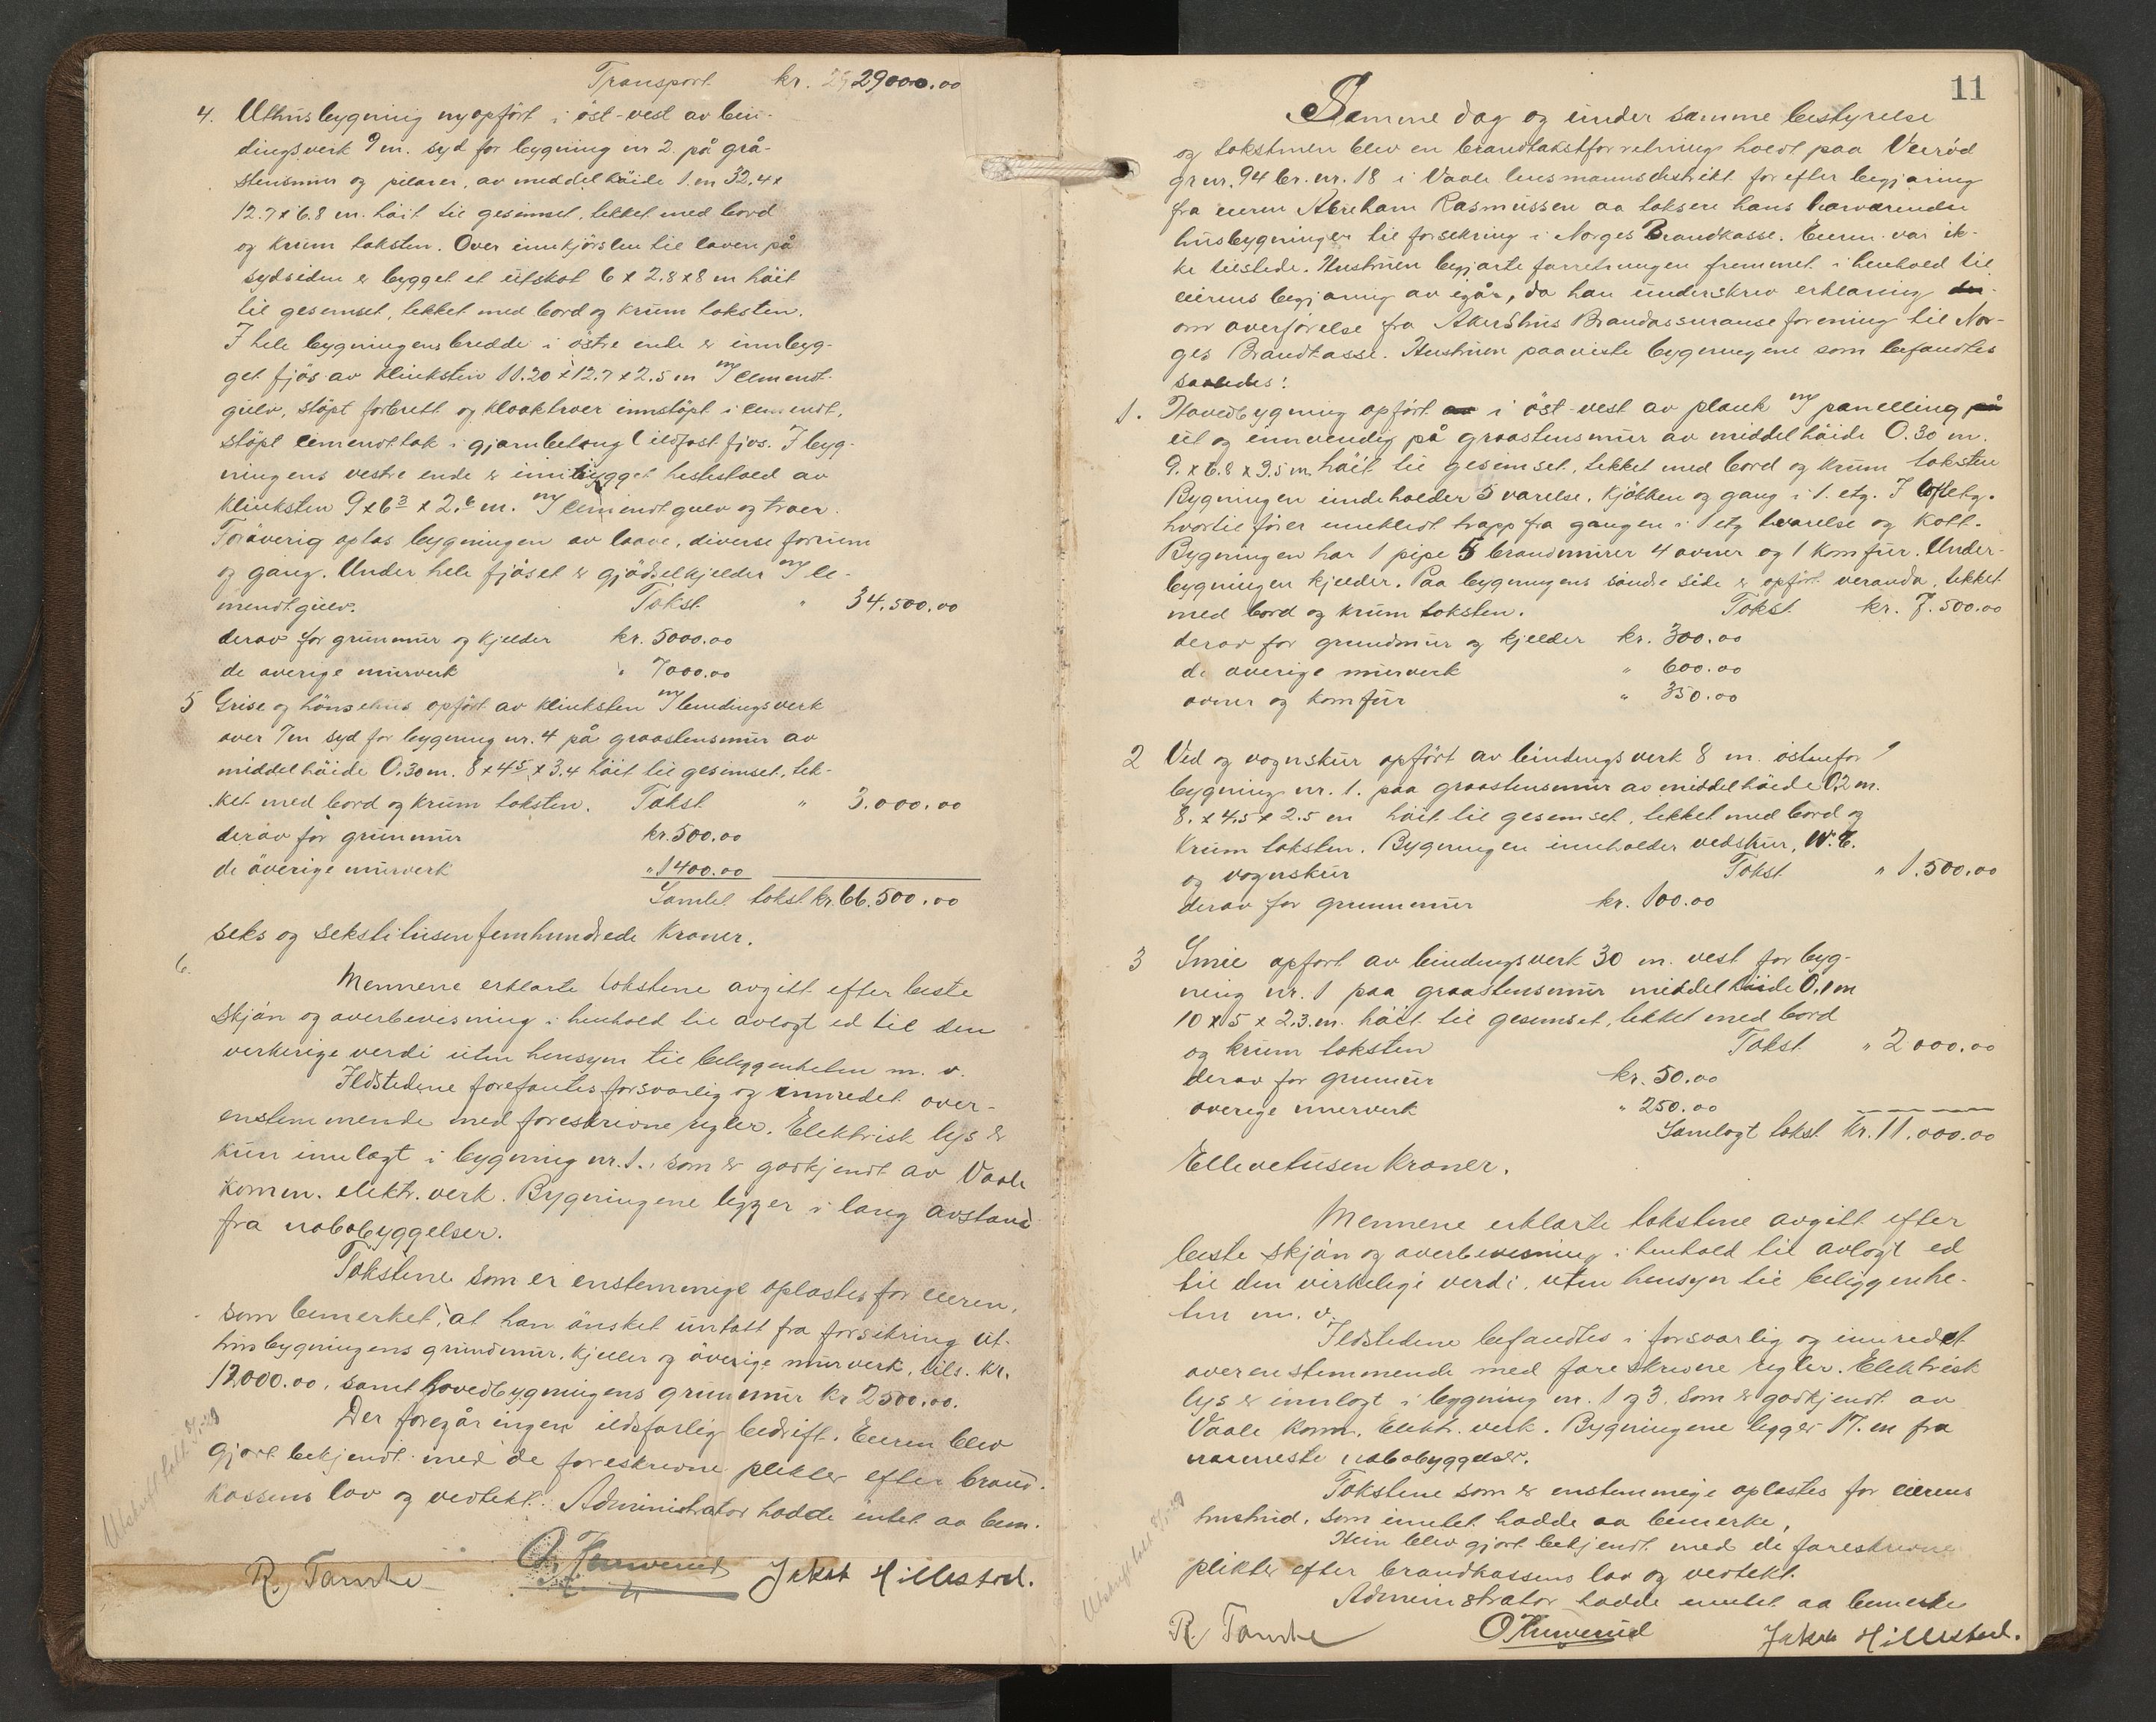 Transport kr. 29000.00
4. Uthusbygning nyopført i öst-vest av bin-
dingsverk 9 m. syd for bygning nr 2. på grå-
stensmur og pilarer, av middelhöide 1. m 32.4 x
12.7 x 6.8 m. höit til gesimset, tekket med bord
og krum taksten. Over innkjörslen til laven på
sydsiden er bygget et utskot 6 x 2.8 x 8 m höit
til gesimset, tekket med bord og krum taksten.
I hele bygningens bredde i östre ende er innbyg-
get fjös av klinksten 11.20 x 12.7 x 2.5 m m/ cement-
gulv, stöpt forbrett og kloaktroer innstöpt i cement,
stöpt cementtak i gjernbetong (ildfast fjös. I byg-
ningens vestre ende er innbygget hestestald av
klinksten 9 x 6³ x 2.⁶ m. m/ cementgulv og traer.
Foröverig optas bygningen av laave, diverse forrum
og gang. Under hele fjöset er gjödselkjelder m/ ce-
mentgulv. Takst " 34.500.00
derav for grunmur og kjelder kr. 5000.00
de överige murverk " 7000.00
5 Grise og hönsehus opfört av klinksten m/ bindingsverk
over 7m syd for bygning nr. 4 på graastensmur av
middelhöide 0.30m. 8 x 4⁵ x 3.4 höit til gesimset, tek-
ket med bord og krum taksten. Takst " 3.000.00
derav for grunmur kr. 500.00
de överige murverk " 1400.00
Samlet takst kr. 66.500.00
seks og sekstitusenfemhundrede kroner.
6.
Mennene erklarte takstene avgitt efter beste
skjön og overbevisning i henhold til avlagt ed til den
verkerige verdi uten hensyn til beliggenheten m. v.
Ildstedene forefantes forsvarlig og innredet over-
enstemmende med foreskrivne regler. Elektrisk lys er
kun innlagt i bygning nr. 1., som er godkjendt av Vaale
komm. elektr. verk. Bygningene ligger i lang avstand
fra nabobyggelser.
Takstene som er enstemmige oplæstes for eieren,
som bemerket, at han önsket untatt fra forsikring ut-
husbygningens grundmur, kjeller og överige murverk, tils. kr.
12000.00, samt hovedbygningens grunmur kr 2500.00.
Der foregår ingen ildsfarlig bedrift. Eieren blev
gjort bekjendt med de foreskrevne plikter efter brand-
kassens lov og vedtekt. Administrator hadde intet aa bem.
Utskrift tatt
R. Tanche O. Hunverud Jakob Hillestad.
11
Samme dag og under samme bestyrelse
og takstmen blev en brandtakstforretning holdt paa Veiröd
gr. nr. 94 br. nr. 18 i Vaale lensmannsdistrikt forefter begjæring
fra eieren Abraham Rasmussen aa taksere hans harværende
husbygninger til forsekring i Norges Brandkasse. Eieren var ik-
ke tilstede. Hustruen begjærte forretningen fremmet i henhold til
eierens begjæring av igår, da han underskrev erklæring
om overförelse fra Akershus Brandassuranseforening til Nor-
ges Brandkasse. Hustruen paaviste bygningene som befandtes
saaledes:
1. Hovedbygning opfört i öst-vest av plank m/ panelling
ut og innvendig på graastensmur av middelhöide 0.30 m.
9. x 6.8 x 3.5 m. höit til gesimset, tekket med bord og krum taksten
Bygningen indeholder 3 varelse, kjökken og gang i 1. etg. I loftetg.
hvortil förer innklædt trapp fra gangen i 1 etg 1 værelse og kott.
Bygningen har 1 pipe 5 brandmurer 4 ovner og 1 komfur. Under
bygningen kjelder. Paa bygningens söndre side er opfört veranda, tekket
med bord og krum taksten. Takst kr. 7.500.00
derav for grundmur og kjelder kr. 300.00
de överige murverk " 600.00
ovner og komfur " 350.00
2 Ved og vognskur opfört av bindingsverk 8 m. östenfor
bygning nr. 1. paa graastensmur av middelhöide 0.2 m.
8. x 4.5 x 2.5 m höit til gesimset, tekket med bord og
krum taksten. Bygningen inneholder vedskur, W.C.
og vognskur Takst " 1.500.00
derav for grunnmur kr. 100.00
3 Smie opfört av bindingsverk 30 m. vest for byg-
ning nr. 1 paa graastensmur middelhöide 0.1 m
10 x 5 x 2.3. m. höit til gesimset, tekket med bord
og krum taksten Takst " 2 000.00
derav for grunmur kr. 50.00
överige murverk " 250.00
Samlagt takst kr. 11.000.00
Ellevetusen kroner.
Mennene erklærte takstene avgitt efter
beste skjön og overbevisning i henhold til avlagt ed
til den virkelige verdi, uten hensyn til beliggenhe-
ten m. v.
Ildstedene befandtes i forsvarlig og innredet
overenstemmende med foreskrevne regler. Elektrisk
lys er innlagt i bygning nr. 1 og 3. som er godkjendt av
Vaale Komm. Elektr. verk. Bygningene ligger 17. m fra
nærmeste nabobyggelser.
Takstene som er enstemmige oplæstes for eierens
hustrud, som intet hadde aa bemerke,
Hun blev gjort bekjendt med de foreskrevne
plikter efter brandkassens lov og vedtekt.
Administrator hadde intet aa bemerke
Utskrift tatt
R. Tanche O Hunverud Jakob Hillestad.